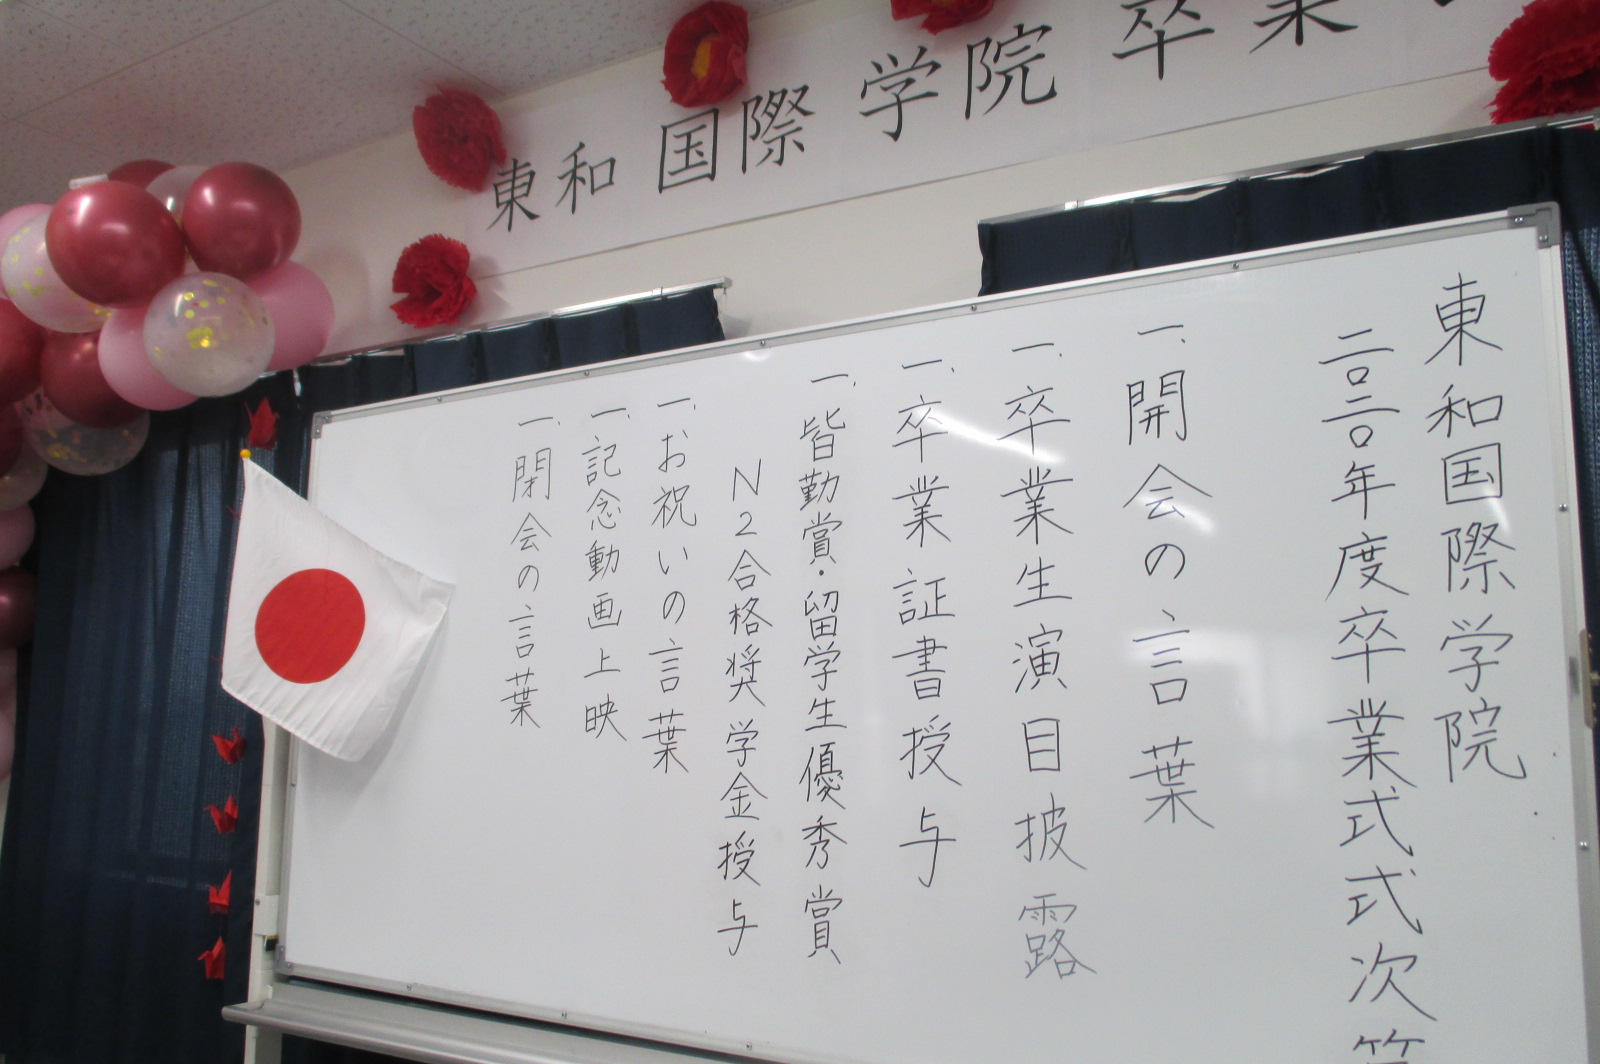 東和国際学院 卒業
東和国際学院
二〇二〇年度卒業式式次第
一、開会の言葉
一、卒業生演目披露
一、卒業証書授与
一、皆勤賞・留学生優秀賞
N2合格奨学金授与
一、お祝いの言葉
一、記念動画上映
一、閉会の言葉